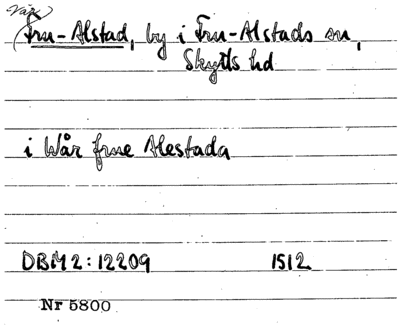 Vår
Fru-Alstad, by i Fru-Alstads sn,
Skytts hd
i Wår frue Alestada
DBM 2:12209 1512
Nr 5800